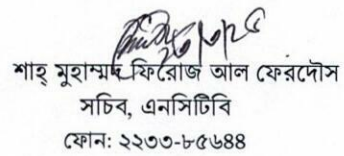 ২৬/৩/২৫
শাহ্ মুহাম্মদ ফিরোজ আল ফেরদৌস
সচিব, এনসিটিবি
ফোন: ২২৩৩-৮৫৬৪৪